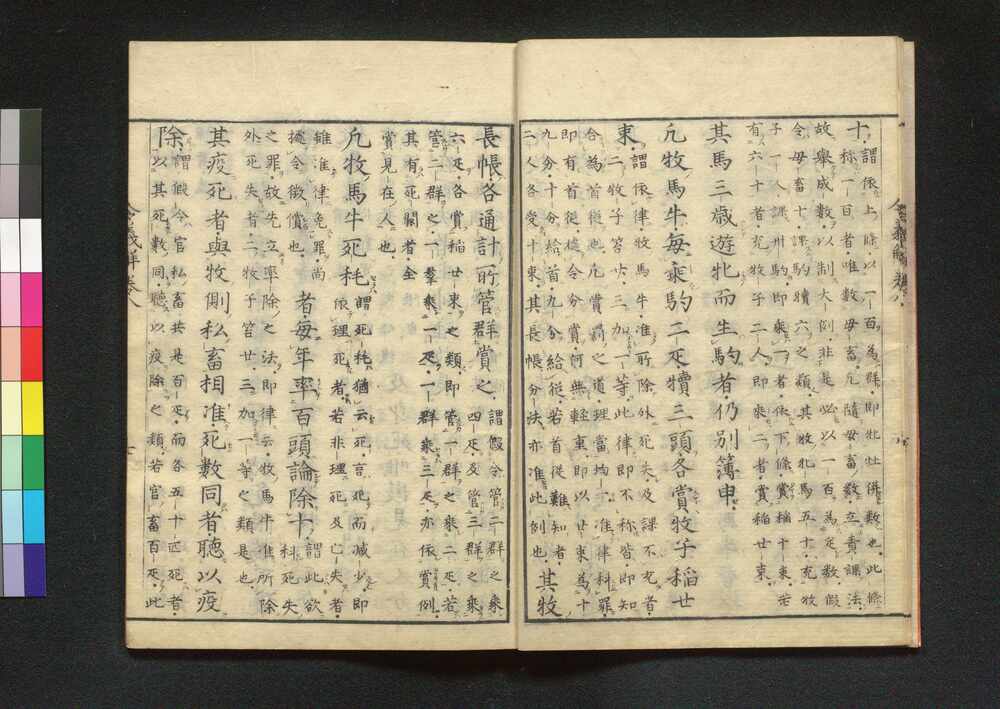 十謂依上條以一百為群即牝牡併數也此條
稱一百者唯數母畜凡隨母畜數立責課法
故擧成數以制大例非是必以一百為定數假
令母畜十課駒犢六之類其牧牝馬五十充牧
子一人課卅駒即乘一者依下條賞稲十束若
有六十者充牧子二人即乘二者賞稲廿束
其馬三歲遊牝而生駒者仍別簿申
凡牧馬牛每乘駒二疋犢三頭各賞牧子稲廿
束謂依律牧馬牛准所除外死失及課不充者
一牧子笞廿三加一等此律即不稱皆即知
合為首從也凡賞罰之道理當均一准律科罪
即有首從據令分賞何無輕重即以廿束為十
九分十分給首其九分給從若首從難知者
二人各受十束其長帳分法亦准此例也其牧
長帳各通計所管群賞之謂假令管二群之乘
四疋及管三群之乘
六疋各賞稲廿束之類即管一群之乘二疋若
管二群之一羣乘一疋一群乘三疋亦依賞例
其有死闕者全
賞見在人也
凡牧馬牛死耗謂死耗猶云死言死而減少即
依理死者若非理死及亡失者
雖准律免罪尚
據令徴償也者每年率百頭論除十謂此欲
科死失
之罪故先立率除之法即律云牧馬牛准所除
外死失者二牧子笞廿三加一等之類是也
其疫死者與牧側私畜相准死數同者聽以疫
除謂假令官私畜共是百疋而各五十匹死者
以其死數同聽以疫除之類若官畜百疋此
令義解卷八